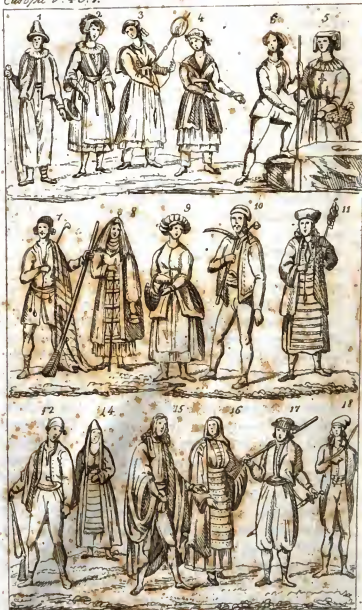 Europa V. 4
1 2 3 4 6 5
7 8 9 10 11
12 14 15 16 17 18